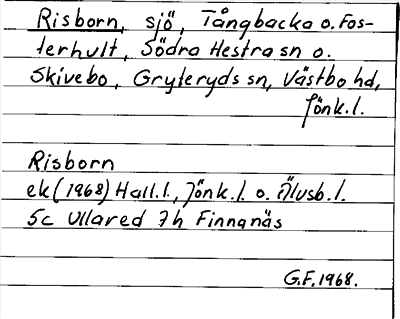 Risborn, sjö, Tångbacka o. Fos-
terhult, Södra Hestra sn o.
Skivebo, Gryteryds sn, Västbo hd,
Jönk.l.
Risborn
ek (1968) Hall.l., Jönk.l. o. Älvsb.l.
5c Ullared 7h Finnanäs
G.F. 1968.